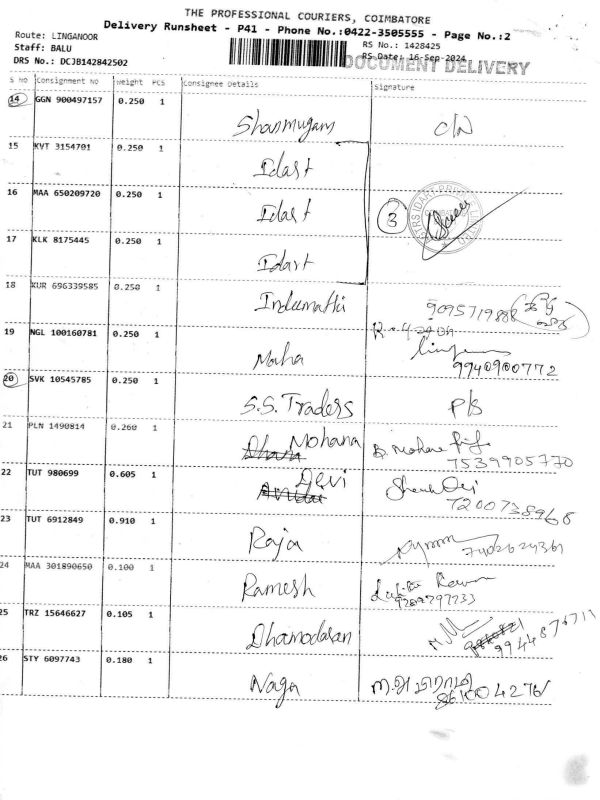 THE PROFESSIONAL COURIERS, COIMBATORE
Delivery Runsheet - P41 - Phone No.:0422-3505555 - Page No.:2
Route: LINGANOOR
RS No.: 1428425
Staff: BALU
RS Date: 16-Sep-2024
DRS No.: DCJB142842502
DOCUMENT DELIVERY
S NO Consignment No Weight PCS Consignee Details Signature
14 GGN 900497157 0.250 1
Shanmugam C/N
15 KVT 3154701 0.250 1
Idart
16 MAA 650209720 0.250 1
Idart 3
17 KLK 8175445 0.250 1
Idart
18 KUR 696339585 0.250 1
Indumathi 9095719888
19 NGL 100160781 0.250 1
Maha 9940900772
20 SVK 10545785 0.250 1
S.S. Traders P/S
21 PLN 1490814 0.260 1
Mohana 7539905770
22 TUT 980699 0.605 1
Devi 7200738968
23 TUT 6912849 0.910 1
Raja
24 MAA 301890650 0.100 1
Ramesh
25 TRZ 15646627 0.105 1
Dhamodasan
26 STY 6097743 0.180 1
Naga